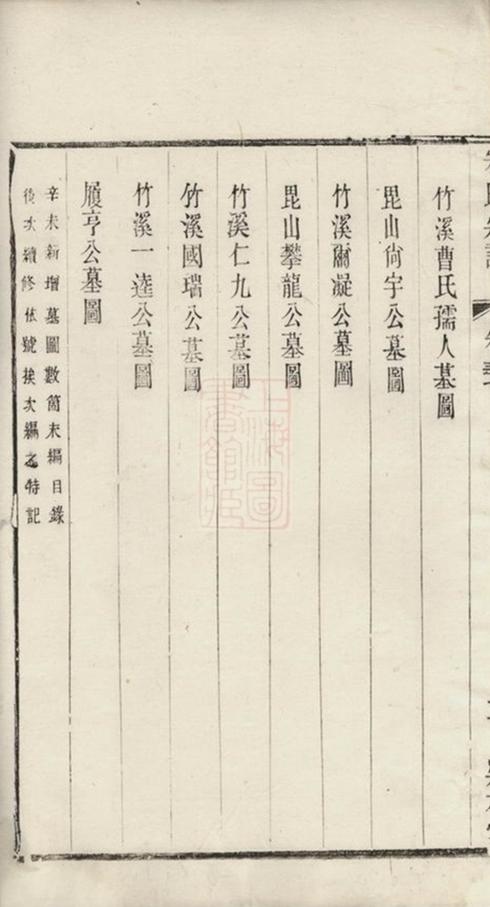 竹溪曹氏孺人墓圖
毘山尙宇公墓圖
竹溪爾凝公墓圖
毘山攀龍公墓圖
竹溪仁九公墓圖
竹溪國瑞公墓圖
竹溪一逵公墓圖
履亨公墓圖
辛未新增墓圖數箇未編目錄
後次續修依號挨次編之特記
上海圖書館藏